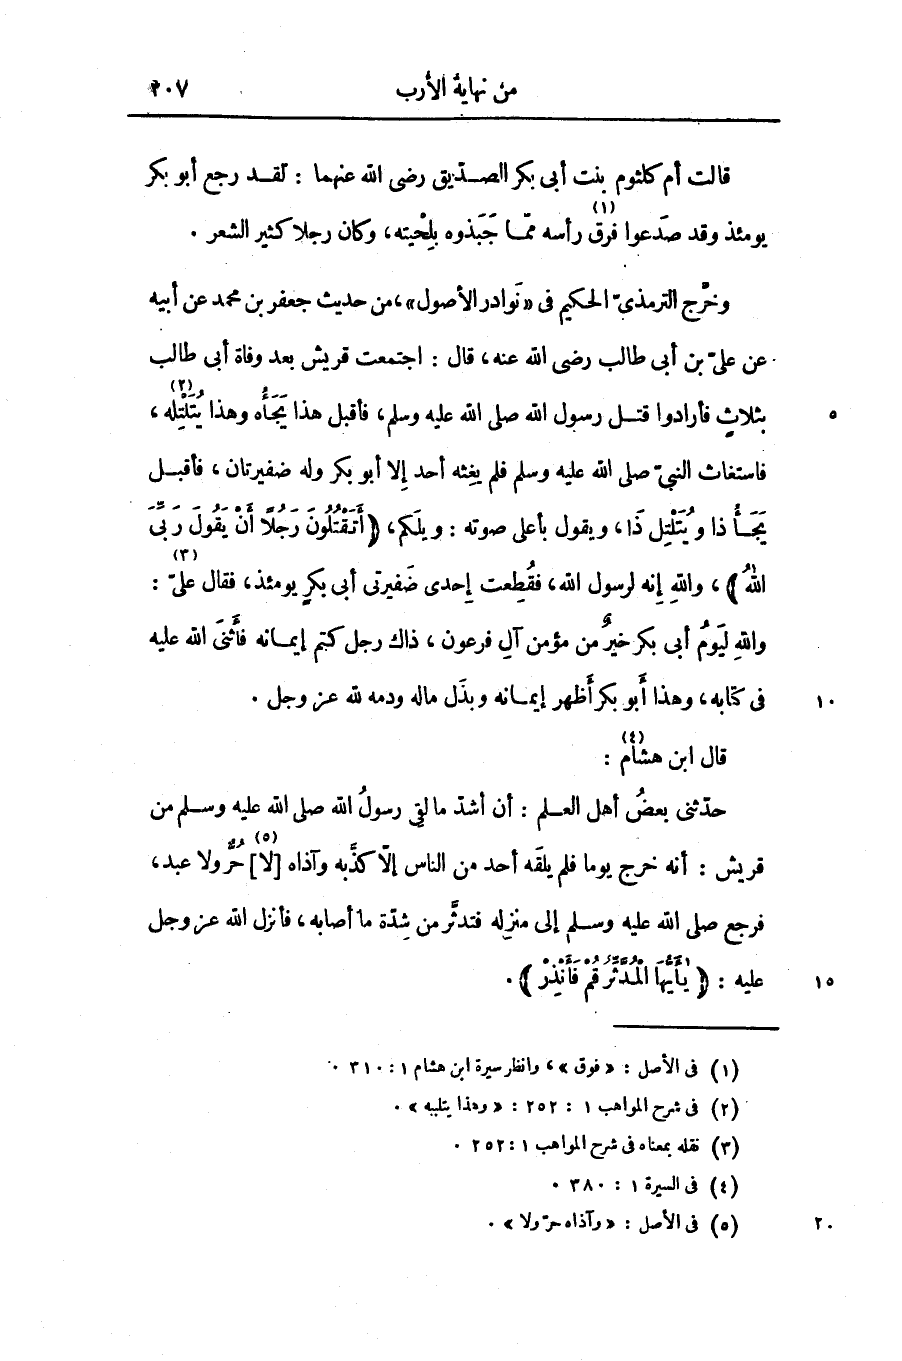 من نهاية الأرب ٢٠٧
قالت أم كلثوم بنت أبى بكر الصـديق رضى الله عنهما : لقـد رجع أبو بكر
يومئذ وقد صَدعوا فرق (١) رأسه ممّـا جَبَذوه بلِحْيته، وكان رجلا كثير الشعر .
وخرَّج الترمذىّ الحكيم فى «نَوادر الأصول»، من حديث جعفر بن محمد عن أبيه
عن علىّ بن أبى طالب رضى الله عنه، قال : اجتمعت قريش بعد وفاة أبى طالب
بثلاثٍ فأرادوا قتـل رسول الله صلى الله عليه وسلم، فأقبل هذا يَجَأُه وهذا يُتَلْتِله (٢)، ٥
فاستغاث النبىّ صلى الله عليه وسلم فلم يغِثه أحد إلا أبو بكر وله ضفيرتان ، فأقبـل
يَجَـأُ ذا ويُتَلْتِل ذَا، ويقول بأعلى صوته : ويلَكم، ﴿أَتَقْتُلُونَ رَجُلًا أَنْ يَقُولَ رَبِّىَ
اللهُ﴾، واللهِ إنه لرسول الله، فقُطِعت إحدى ضَفيرتى أبى بكرٍ يومئذ (٣)، فقال علىّ :
واللهِ لَيَومُ أبى بكر خيرٌ من مؤمن آلِ فرعون ، ذاك رجل كتم إيمـانه فأَثنَى الله عليه
فى كتابه، وهذا أبو بكر أَظهر إيمـانه وبذَل ماله ودمه لله عز وجل . ١٠
قال ابن هشام (٤) :
حدّثنى بعضُ أهل العـلم : أن أشدّ ما لقى رسولُ الله صلى الله عليه وسـلم من
قريش : أنه خرج يوما فلم يلقَه أحد من الناس إلّا كذَّبه وآذاه [لا] (٥) حُرٌّ ولا عبد،
فرجع صلى الله عليه وسـلم إلى منزِله فتدثَّر من شِدّة ما أصابه، فأنزل الله عز وجل
عليه : ﴿يَٰأَيُّهَا الْمُدَّثِّرُ قُمْ فَأَنْذِرْ﴾ . ١٥
(١) فى الأصل : «فوق»، وانظر سيرة ابن هشام ١ : ٣١٠ .
(٢) فى شرح المواهب ١ : ٢٥٢ : «وهذا يتلببه» .
(٣) نقله بمعناه فى شرح المواهب ١ : ٢٥٢ .
(٤) فى السيرة ١ : ٣٨٠ .
(٥) فى الأصل : «وآذاه حرّ ولا» . ٢٠